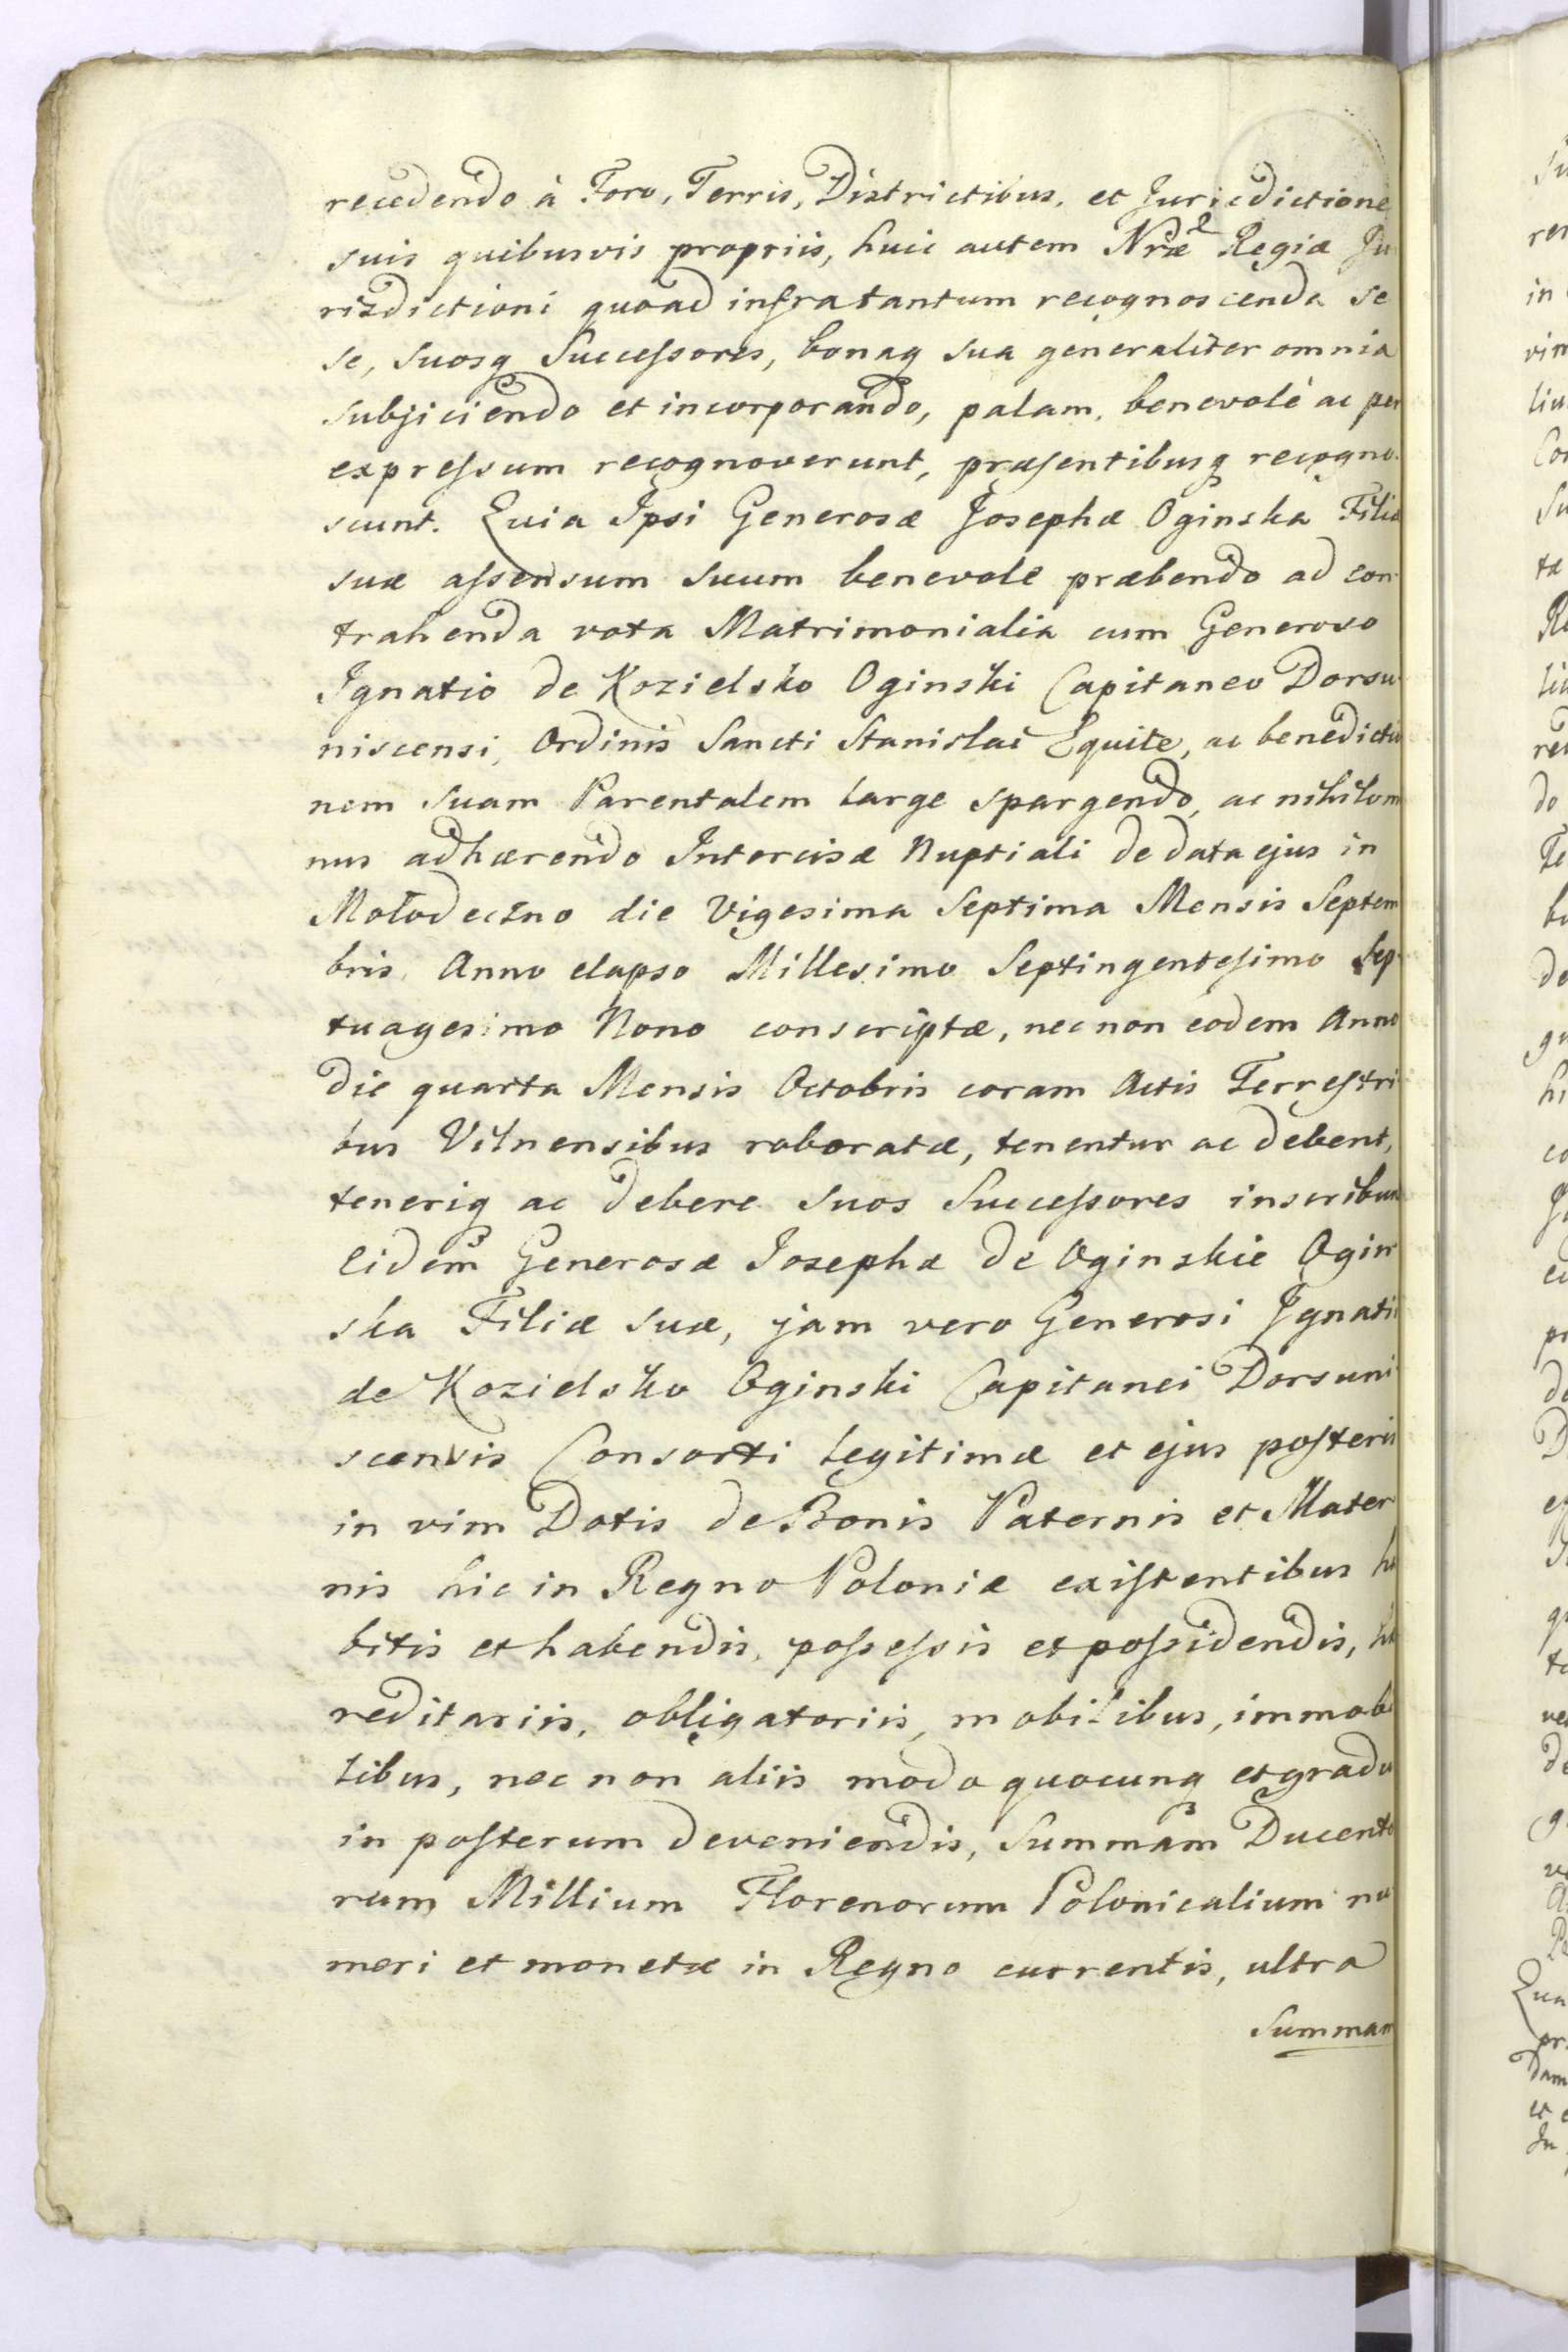 recedendo à Foro, Terris, Districtibus, et Jurisdictione
suis quibusvis propriis, huic autem Nræ Regiæ Ju
risdictioni quoad infratantum recognoscenda se
se, suosq Successores, bonaq sua generaliter omnia
subjiciendo et incorporando, palam, benevolè ac per
expressum recognoverunt, præsentibusq recogno
scunt. Quia Ipsi Generosæ Josephæ Oginska Filiæ
suæ assensum suum benevole præbendo ad con
trahenda vota Matrimonialia cum Generoso
Ignatio de Kozielsko Oginski Capitaneo Dorsu
niscensi, Ordinis Sancti Stanislai Equite, ac benedictio
nem suam Parentalem large spargendo, ac nihilom
nus adhærendo Intercisæ Nuptiali de data ejus in
Mołodeczno die Vigesima Septima Mensis Septem
bris Anno elapso Millesimo Septingentesimo Sep
tuagesimo Nono conscriptæ, nec non eodem Anno
die quarta Mensis Octobris coram Actis Terrestri
bus Vilnensibus roboratæ, tenentur ac debent,
teneriq ac debere suos Successores inscribun
Eidem Generosæ Josephæ de Oginskie Ogin
ska Filiæ suæ, jam vero Generosi Ignatii
de Kozielsko Oginski Capitanei Dorsuni
scensis Consorti legitimæ et ejus posteris
in vim Dotis de Bonis Paternis et Mater
nis hic in Regno Poloniæ existentibus ha
bitis et habendis, possessis et possidendis, hæ
reditariis, obligatoriis, mobilibus, immobi
libus, nec non aliis modo quocunq et gradu
in posterum deveniendis, Summam Ducento
rum Millium Florenorum Polonicalium nu
meri et monetæ in Regno currentis, ultra
Summam